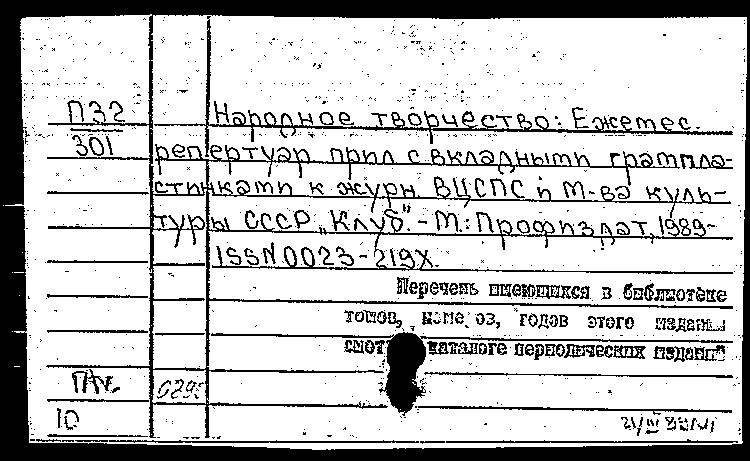 П32
301
Народное творчество: Ежемес.
репертуар прил с вкладными грампла-
стинками к журн ВЦСПС и М-ва куль-
туры СССР „Клуб". - М.: Профиздат, 1989-
ISSN 0023-219X.
Перечень имеющихся в библиотеке
томов, номеров, годов этого издания
смотри каталоге периодических изданий"
10